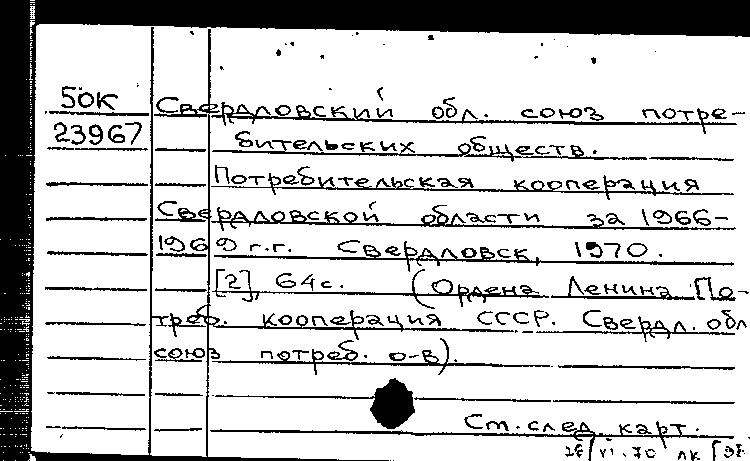 50К
23967
Свердловский обл. союз потре-
бительских обществ.
Потребительская кооперация
Свердловской области за 1966-
1969 г.г. Свердловск, 1970.
[2], 64с. (Ордена Ленина По-
треб. кооперация СССР. Свердл. обл
союз потреб. о-в).
См. след. карт.